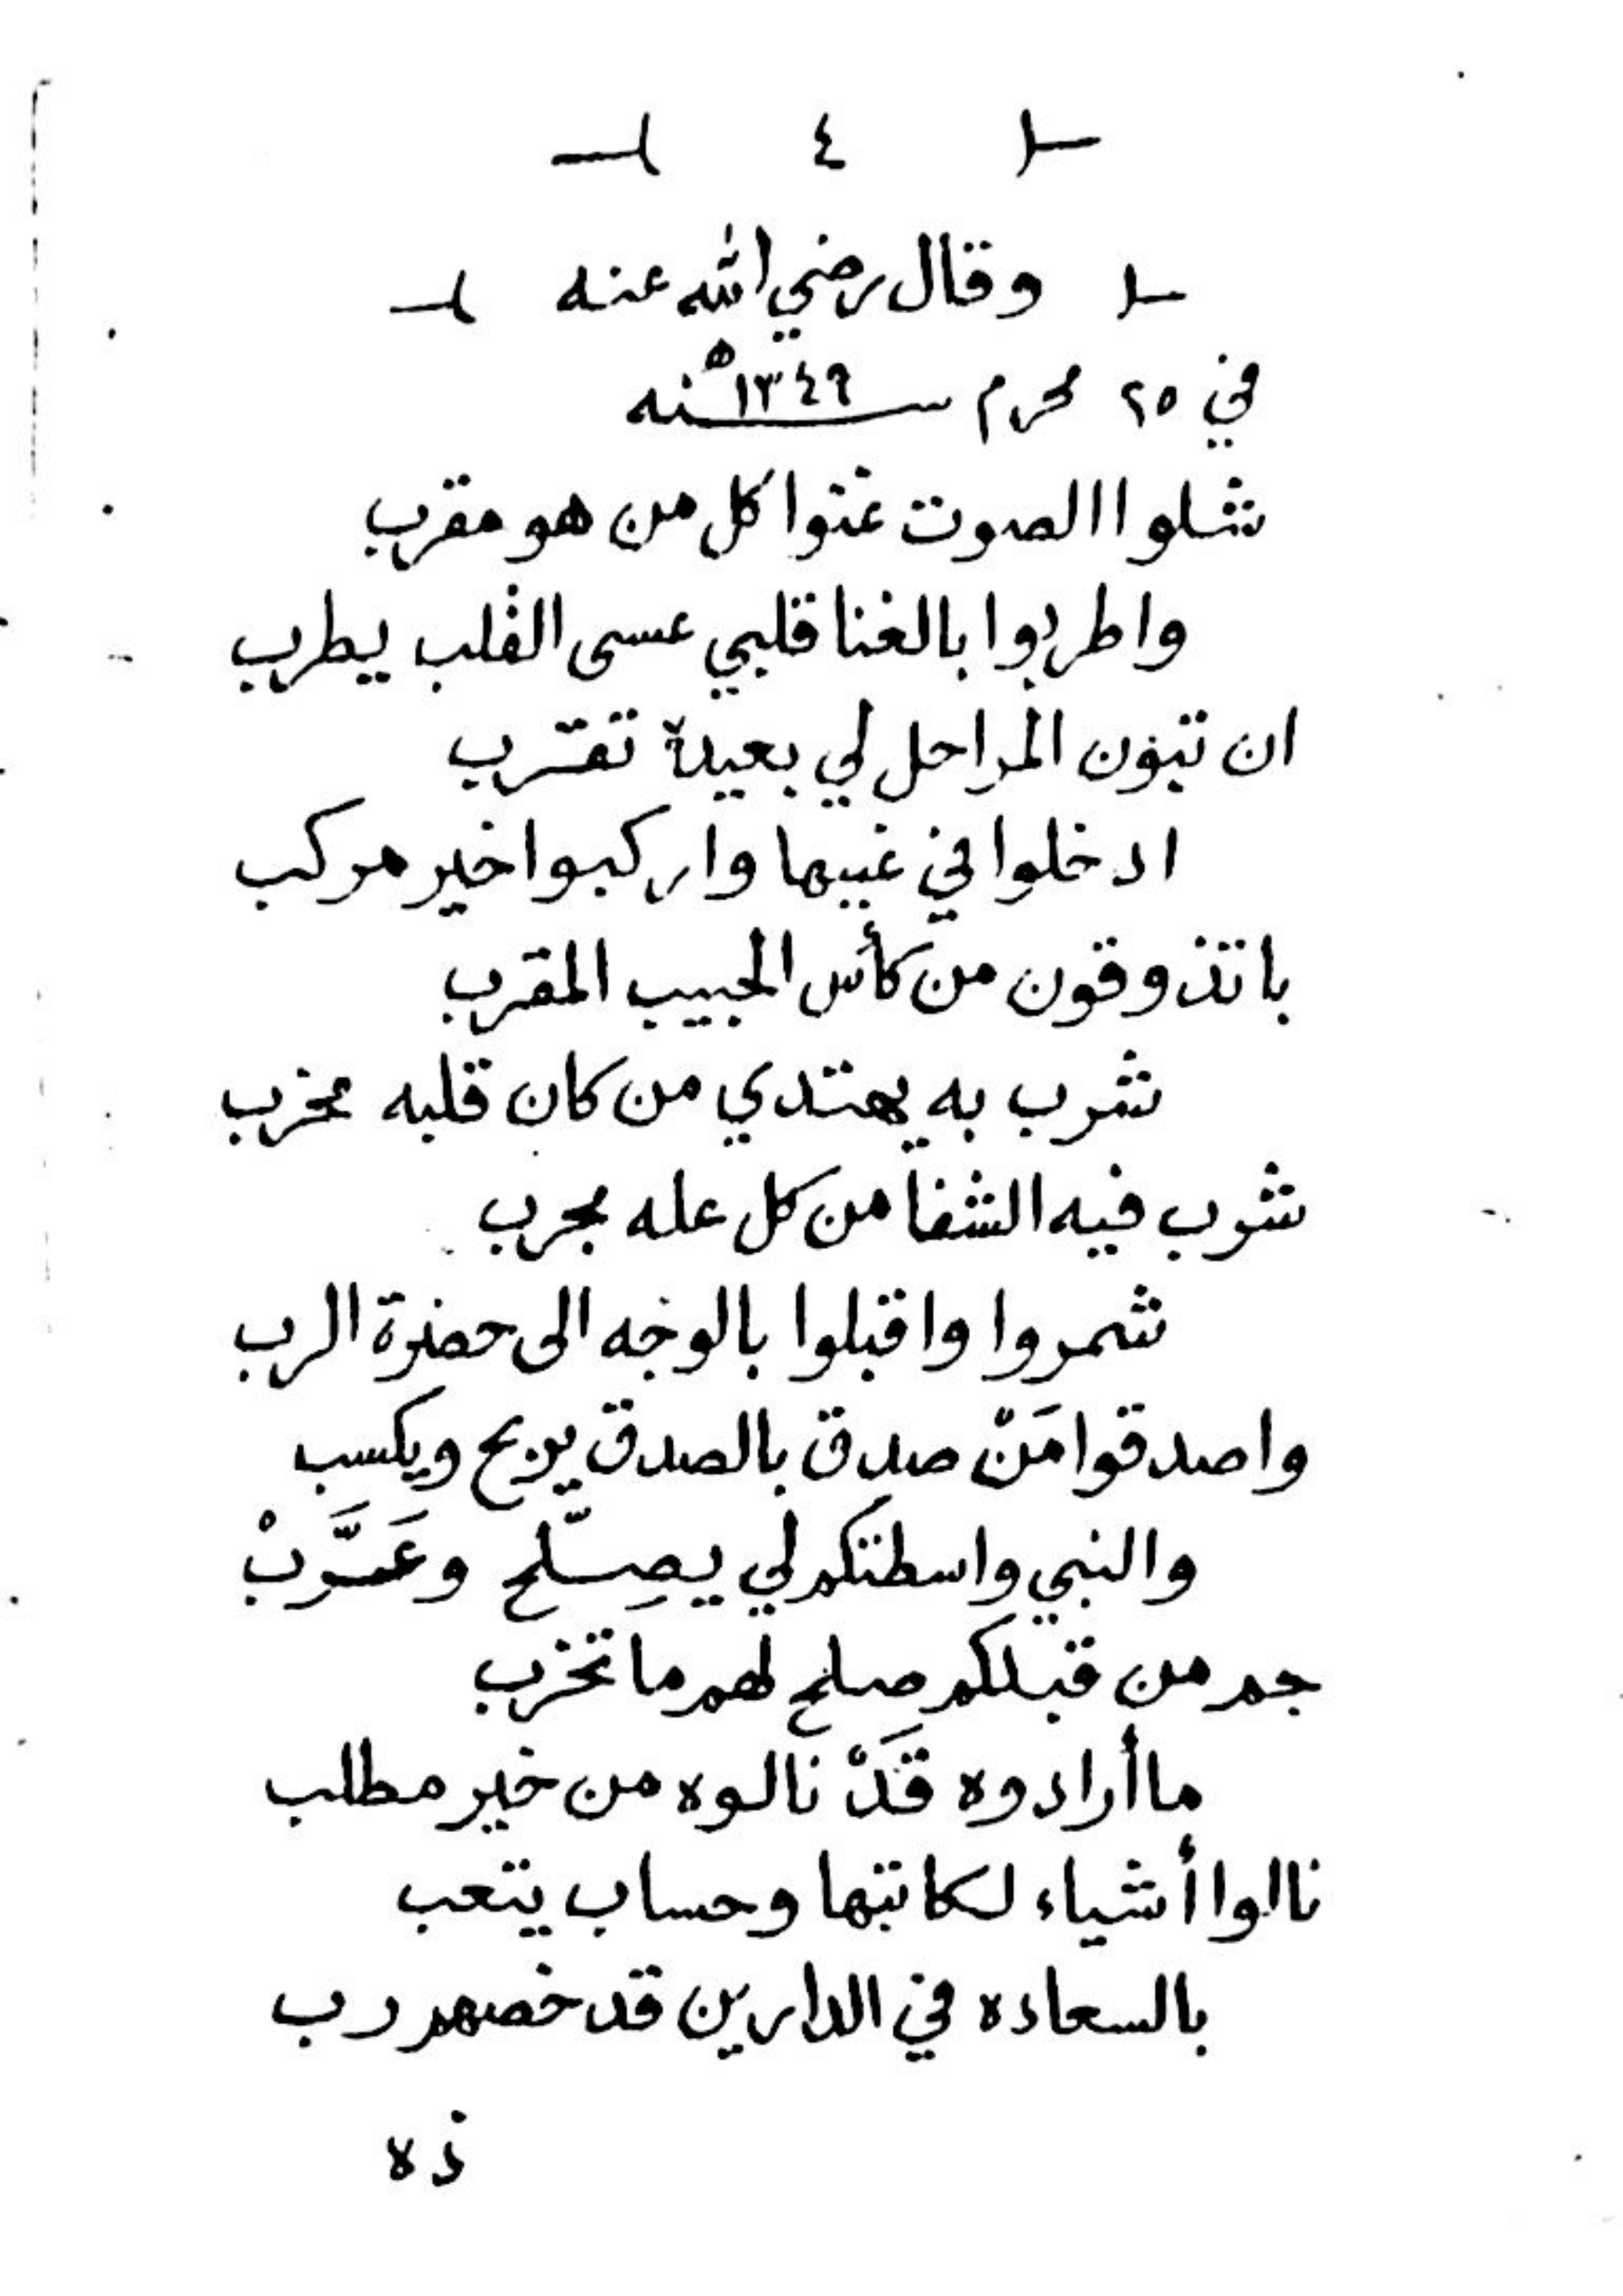 ( ٤ )
( وقال رضي الله عنه )
في ٢٥ محرم سنه ١٣٤٩ ه
شلوا الصوت غنوا كل من هو مقرب
واطربوا بالغنا قلبي عسى القلب يطرب
ان تبون المراحل لي بعيدة تقترب
ادخلوا في غبيها واركبوا خير مركب
باتذوقون من كأس الحبيب المقرب
شرب به يهتدي من كان قلبه مخرب
شرب فيه الشفا من كل عله مجرب
شمروا واقبلوا بالوجه الى حضرة الرب
واصدقوا مَنْ صدق بالصدق يربح ويكسب
والنبي واسطتكم لي يصِلّح وعَسَّربْ
جم من قبلكم صلح لهم ما تخرب
ما أرادوه قَدْ نالوه من خير مطلب
نالوا أشياء لكاتبها وحساب يتعب
بالسعاده في الدارين قد خصهم رب
ذه